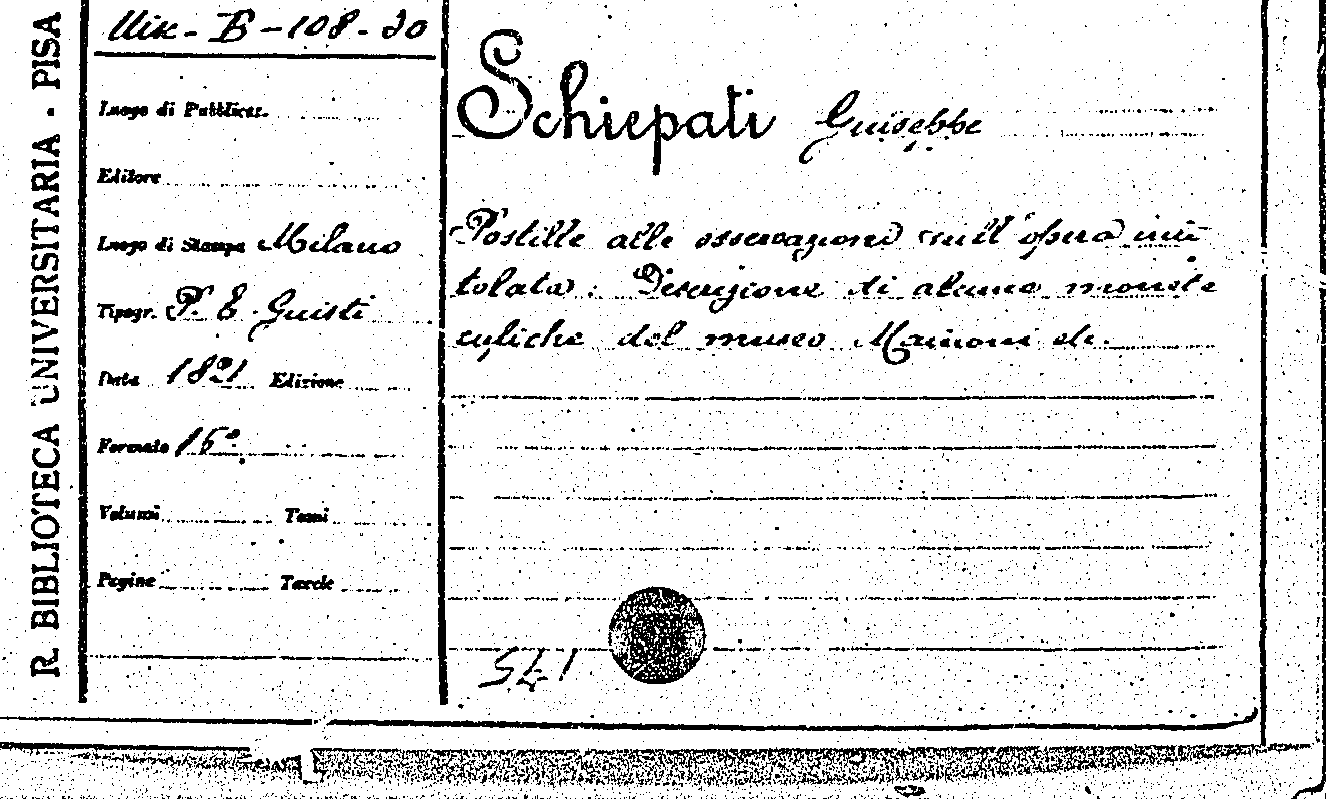 R. BIBLIOTECA UNIVERSITARIA - PISA
Misc - B - 108 - 30
Luogo di Pubblicaz.
Editore
Luogo di Stampa Milano
Tipogr. P. E. Guisti
Data 1821 Edizione
Formato 16º
Volumi Tomi
Pagine Tavole
Schiepati Guiseppe
Postille alle osservazioni sull'opera inti
tolata: Descrizione di alcune monete
cufiche del museo Mainoni etc.
541